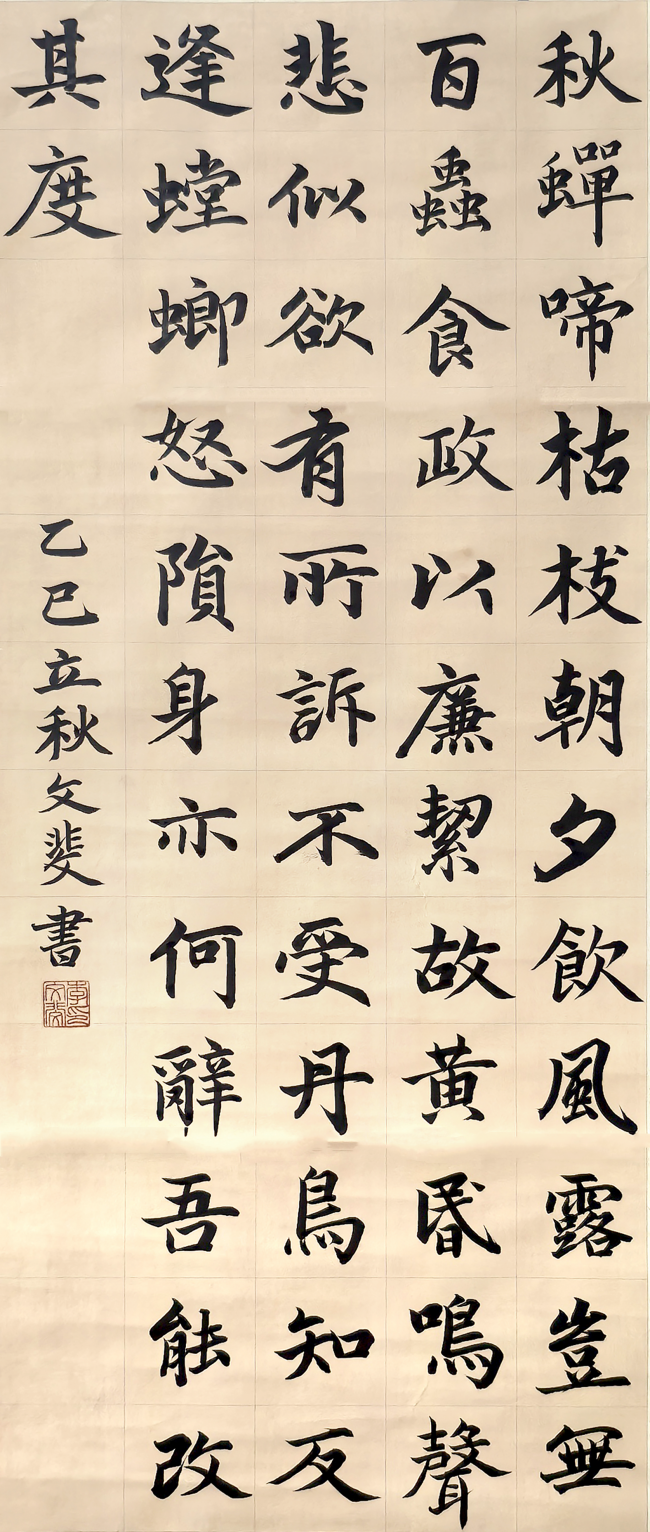 秋蟬啼枯枝朝夕飲風露豈無
百蟲食政以廉絜故黃昬鳴聲
悲似欲有所訴不受丹鳥知反
逢螳螂怒隕身亦何辭吾能改
其度
乙巳立秋文斐書